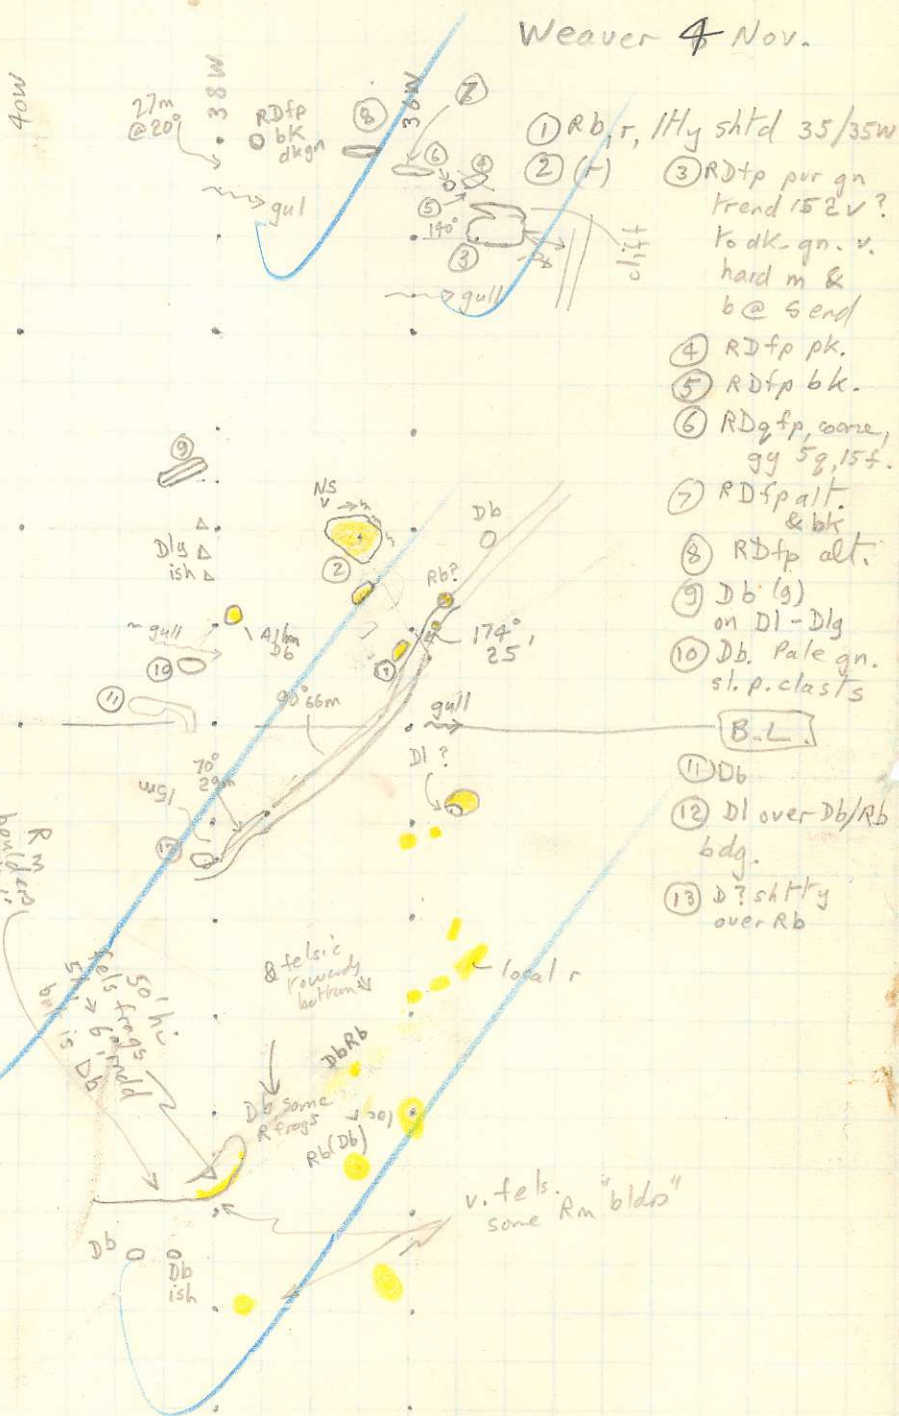 Weaver 4 Nov.
40W
38W
36W
27m
@ 20°
RDfp
bk
dkgn
⑧
⑦
⑥
④
⑤
140°
③
cliff
gul
gull
① Rb, r, lHy shtd 35/35W
② (r)
③ RDfp pur gn
trend 152 v?
to dk. gn. v.
hard m &
b @ S end
④ RDfp pk.
⑤ RDfp bk.
⑥ RDqfp, coarse,
gy 5q, 15f.
⑦ RDfp alt.
& bk
⑧ RDfp alt.
⑨ Db (g)
on Dl - Dlg
⑩ Db. Pale gn.
sl. p. clasts
B.L.
⑪ Db
⑫ Dl over Db/Rb
bdg.
⑬ D? shtty
over Rb
⑨
Dlg
ish
NS
v
②
Db
Rb?
174°
25'
①
~ gull
Db
⑩
⑪
90° 66m
gull
Dl ?
70°
29m
15m
Rm
boulders
50' hi
fels frags
5% → 6" mdd
but is Db
& felsic
towards
bottom
local r
DbRb
Db some
R frags
loc r
Rb(Db)
v. fels.
some Rm "bldrs"
Db
Db
ish